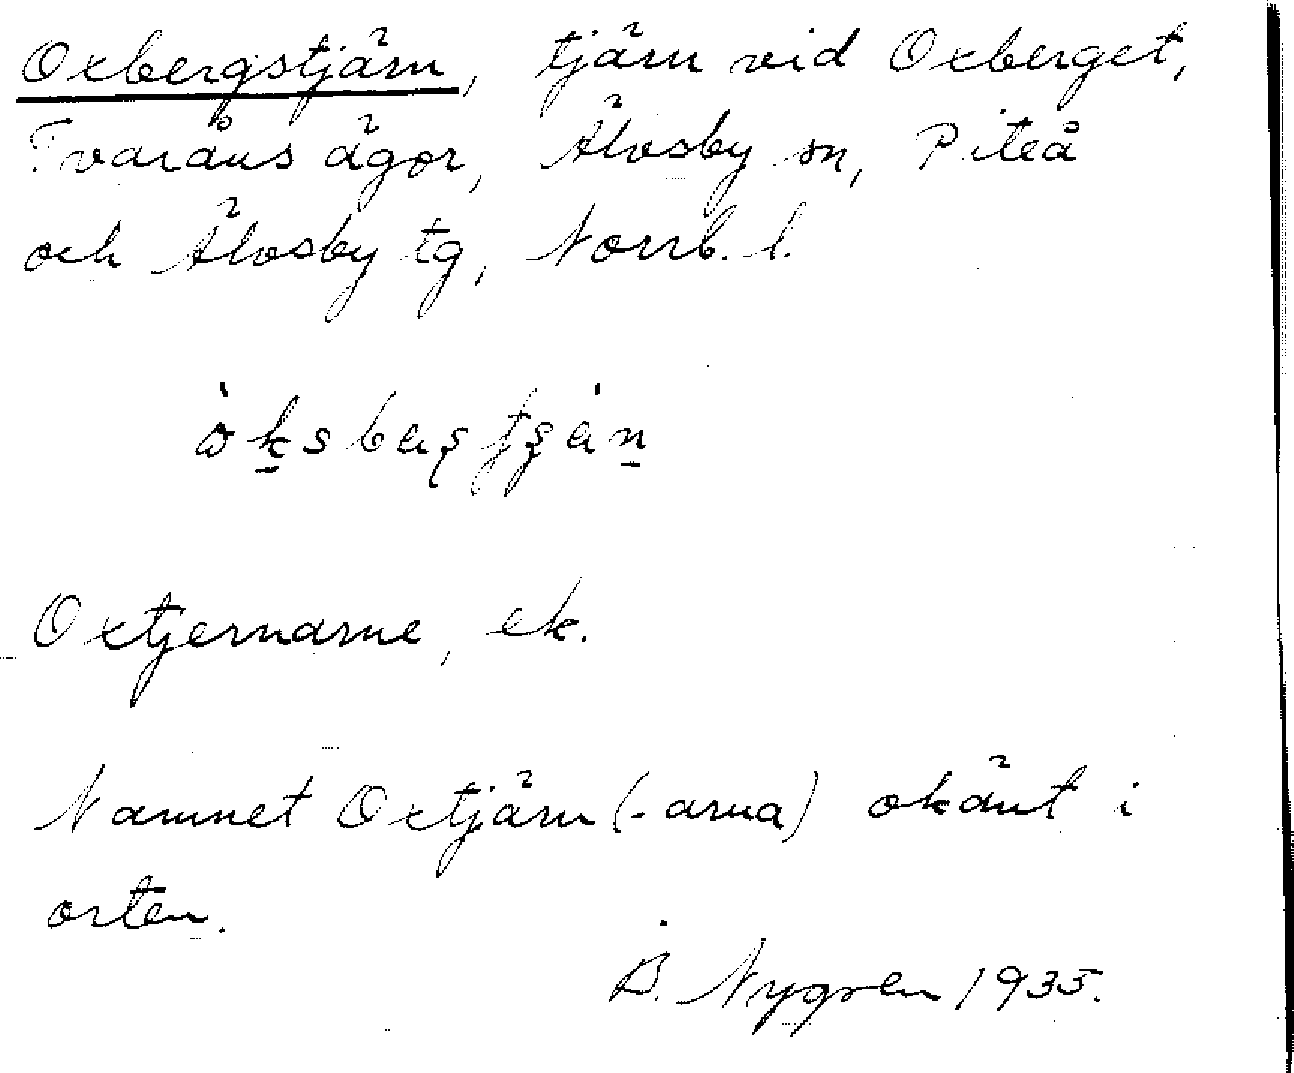 Oxbergstjärn, tjärn vid Oxberget,
Tvaråns ägor, Älvsby sn, Piteå
och Älvsby tg, Norrb. l.
Oxtjernarne, ek.
Namnet Oxtjärn (-arna) okänt i
orten.
Nygren 1935.